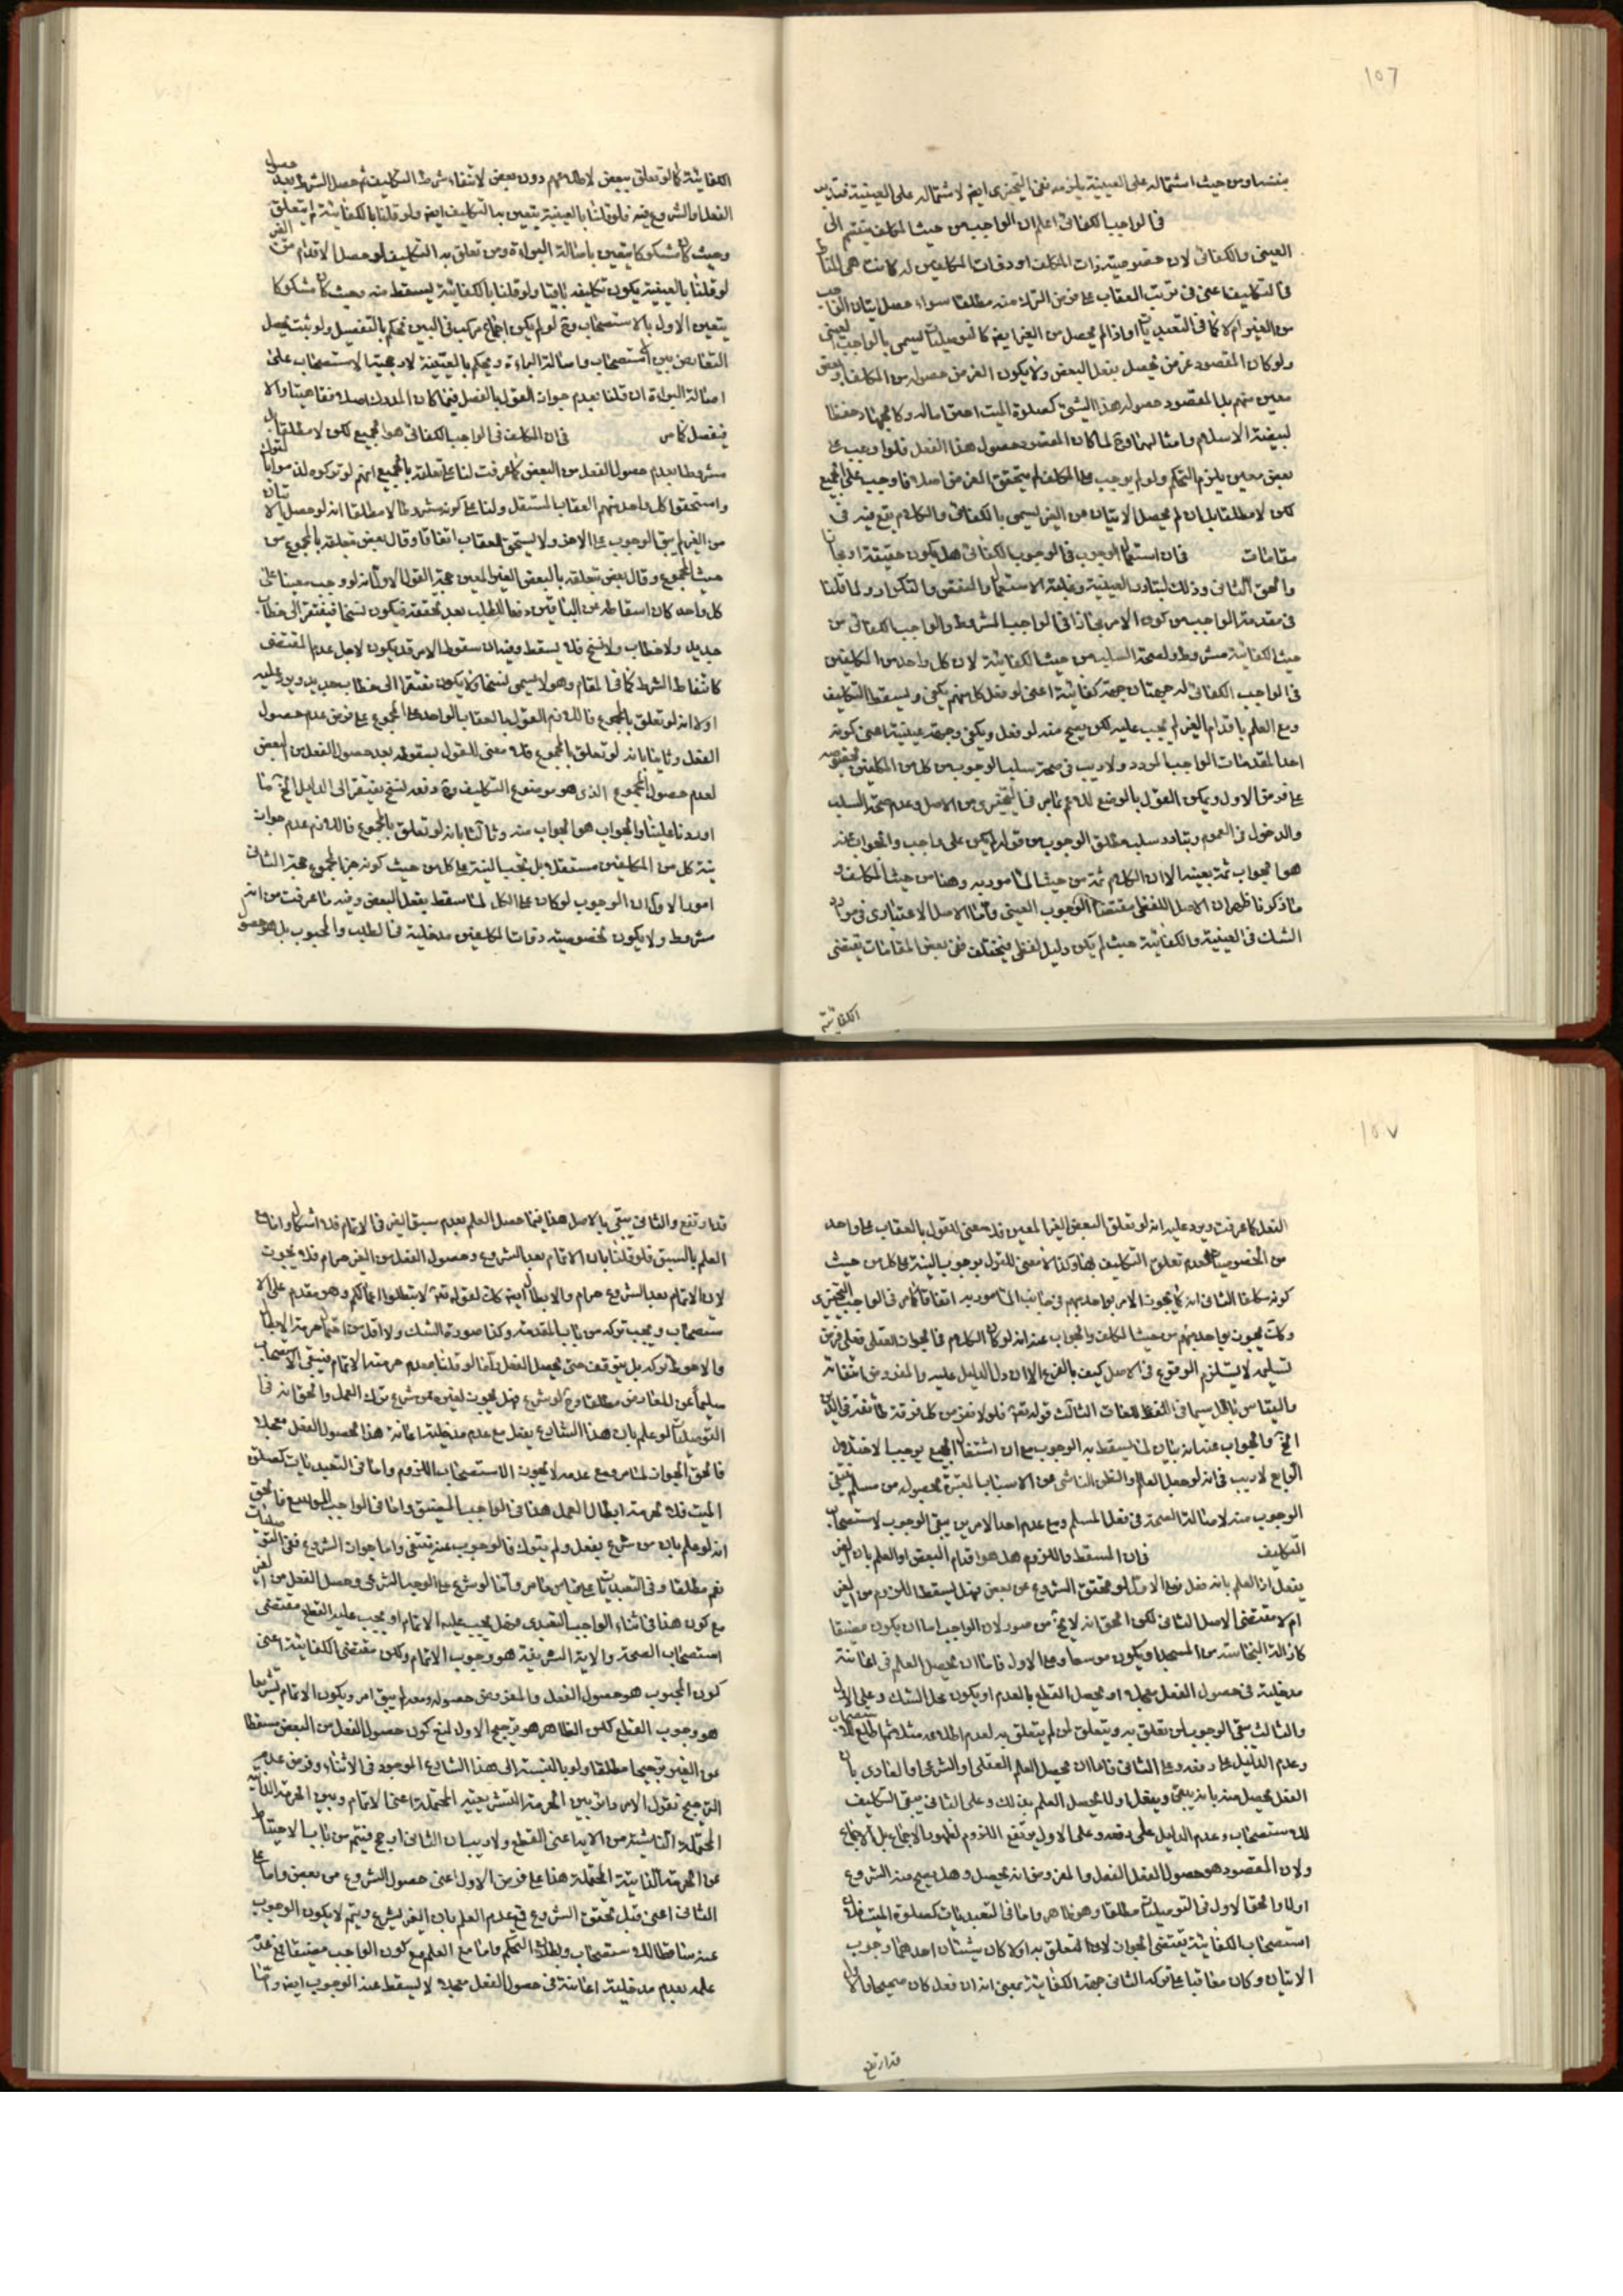 ١٥٦
من حيث اشتماله على العينية يلزمه نفى التخييرى ايض لاشتماله على العينية
فى الواجب الكفائى اعلم ان الواجب من حيث المكلف ينقسم الى
العينى والكفائى لان خصوصية ذات المكلف او ذوات المكلفين له كانت هى المناط
فى التكليف اعنى فى ترتب العقاب على فرض الترك منه مطلقا سواء حصل اتيان الفا
من الغير ام لا كما فى التعبديات او اذا لم يحصل من الغير ايض كالتوصليات يسمى بالواجب العينى
ولو كان المقصود غرض يحصل بفعل البعض ولا يكون الغرض حصوله من المكلف او بعض
معين منهم بل المقصود حصول هذا الشئ كصلوة الميت وكالجهاد حفظا
لبيضة الاسلام وامثالهما وح لما كان المقصود حصول هذا الفعل فلو اوجب على
بعض معين يلزم التحكم ولو لم يوجب على المكلف لم يتحقق الغرض اصلا فاوجب على الجميع
لكن لا مطلقا بل ان لم يحصل الاتيان من الغير يسمى بالكفائى والكلام يقع فيه فى
مقامات فى ان استعمال الوجوب فى الوجوب الكفائى هل يكون حقيقة او مجازا
والحق الثانى وذلك لتبادر العينية وغلبة الاستعمال والنقض والتكرار ولما قلنا
فى مقدمة الواجب من كون الامر مجازا فى الواجب المشروط والواجب الكفائى من
حيث الكفائية مشروط ولصحة السلب من حيث الكفائية لان كل واحد من المكلفين
فى الواجب الكفائى له جهتان جهة كفائية اعنى لو فعل كل منهم يكفى ويسقط التكليف
ومع العلم باقدام الغير لم يجب عليه لكن يصح منه لو فعل ويكفى وجهة عينية اعنى كونه
احد المقدمات الواجب المردد ولا ريب فى صحة سلب الوجوب من كل من المكلفين بخصوصه
على فرض الاول ويمكن القول بالوضع للاعم بما مر فى التخييرى من الاصل وعدم صحة السلب
والدخول فى العموم وتبادر سلب مطلق الوجوب من قوله لم يكن على واجب والجواب عنه
هو الجواب ثمة بعينه الا ان الكلام ثمة من حيث المامور به وهنا من حيث المكلف و
مما ذكرنا ظهر ان الاصل اللفظى مقتضاه الوجوب العينى واما الاصل الاعتبارى فى موارد
الشك فى العينية والكفائية حيث لم يكن دليل لفظى فيختلف ففى بعض المقامات يقتضى
الكفائية
الكفائية كما لو تعلق ببعض دون بعض لانتفاء شرط التكليف ثم حصل الشرط بعد حصول
الفعل او الشروع فيه فلو قلنا بالعينية يتعين به التكليف ايض ولو قلنا بالكفائية لم يتعلق
وحيث كان مشكوكا يتعين باصالة البراءة ومن تعلق به التكليف لو حصل الاقدام من الغير
لو قلنا بالعينية يكون تكليفه ثابتا ولو قلنا بالكفائية يسقط منه وحيث كان مشكوكا
يتعين الاول بالاستصحاب وح لو لم يكن اجماع مركب فى البين نحكم بالتفصيل ولو ثبت يحصل
التعارض بين الاستصحاب واصالة البراءة ونحكم بالعينية لارجحية الاستصحاب على
اصالة البراءة ان قلنا بعدم جواز القول بالفصل فيما كان المدرك اصلا فقاهيا والا
فيفصل كما مر فى ان المكلف فى الواجب الكفائى هو الجميع لكن لا مطلقا بل
مشروطا بعدم حصول الفعل من البعض كما عرفت لنا على تعلقه بالجميع انهم لو تركوه
واستحقوا كل واحد منهم العقاب المستقل ولنا على كونه مشروطا لا مطلقا انه لو حصل الاتيان
من الغير لم يبق الوجوب على الاخر ولا يستحق العقاب اتفاقا وقال بعض بتعلقه بالمجموع من
حيث المجموع وقال بعض بتعلقه بالبعض الغير المعين حجة القول الاول انه لو وجب معينا على
كل واحد كان اسقاطه عن الباقين رفعا للطلب بعد تحققه فيكون نسخا فيفتقر الى خطاب
جديد ولا خطاب ولا نسخ فلا يسقط وفيه ان سقوط الامر قد يكون لاجل عدم المقتضى
كانتفاء الشرط كما فى المقام وهو لا يسمى نسخا ولا يكون مفتقرا الى خطاب جديد ويرد عليه
اولا انه لو تعلق بالمجموع فاللازم القول بالعقاب الواحد على المجموع على فرض عدم حصول
الفعل وثانيا بانه لو تعلق بالمجموع فلا معنى للقول بسقوطه بعد حصول الفعل من البعض
لعدم حصول المجموع الذى هو موضوع التكليف وح رفعه نسخ يفتقر الى الدليل الخ ما
اوردنا علينا والجواب هو الجواب منه وثالثا بانه لو تعلق بالمجموع فاللازم عدم جواز
نية كل من المكلفين مستقلا بل تجب النية على كل من حيث كونه جزء المجموع حجة الثانى
امور الاول ان الوجوب لو كان على الكل لما سقط بفعل البعض وفيه ما عرفت من انه
مشروط ولا يكون لخصوصية ذوات المكلفين مدخلية فى الطلب والمحبوب بل هو حصول
١٥٧
الفعل كما عرفت ويرد عليه انه لو تعلق البعض الغير المعين فلا معنى للقول بالعقاب على واحد
من الخصوصيات لعدم تعلق التكليف بها وكذا لا معنى للقول بوجوب النية على كل من حيث
كونه مكلفا الثانى انه كما يجوز الامر بواحد مبهم فى جانب المامور به اتفاقا كما مر فى الواجب التخييرى
وكك يجوز بواحد مبهم من حيث المكلف والجواب عنه انه لو كان الكلام فى الجواز العقلى فعلى فرض
تسليمه لا يستلزم الوقوع فى الاصل كيف بالفرع الا ان دل الدليل عليه والمفروض انتفائه
والقياس باطل سيما فى اللغات الثالث قوله تعالى فلولا نفر من كل فرقة طائفة فى الدين
الخ والجواب عنه انه بيان لما يسقط به الوجوب مع ان اشتغال الجميع يوجب الاختلال
الرابع لا ريب فى انه لو حصل العلم والظن الناشى من الاسباب المعتبرة بحصوله من مسلم يكفى
الوجوب منه لاصالة الصحة فى فعل المسلم ومع عدم احد الامرين يبقى الوجوب لاستصحاب
التكليف فى ان المسقط واللزوم هل هو اقدام البعض او العلم بان الغير
يفعل او العلم بانه فعل فعلى الاول لو تحقق الشروع من بعض فهل يسقط اللزوم من الغير
ام لا مقتضى الاصل الثانى لكن الحق انه لا يخ من صور لان الواجب اما ان يكون مضيقا
كازالة النجاسة من المسجد او يكون موسعا وعلى الاول فاما ان يحصل العلم فى اعانته
مدخلية فى حصول الفعل معجلا او يحصل القطع بالعدم او يكون محل الشك وعلى الاول
والثالث يبقى الوجوب لمن تعلق به ويتعلق لمن لم يتعلق به لعدم اطلاعه مثلا ثم اطلع للاستصحاب
وعدم الدليل على رفعه وعلى الثانى فاما ان يحصل العلم العقلى او الشرعى او العادى بان
الفعل يحصل منه بانه يبقى ويفعل او لا يحصل العلم بذلك وعلى الثانى يبقى التكليف
للاستصحاب وعدم الدليل على رفعه وعلى الاول يرتفع اللزوم لظهور الاجماع بل الاجماع
ولان المقصود هو حصول الفعل والمفروض انه يحصل وهل يصح منه الشروع
اولا والحق الاول فى التوصليات مطلقا وهو ظاهر واما فى التعبديات كصلوة الميت فلان
استصحاب الكفائية يقتضى الجواز لان المتعلق به اولا كان شيئان احدهما وجوب
الاتيان وكان معاقبا على تركه الثانى جهة الكفائية بمعنى انه ان فعل كان صحيحا والاول
قد ارتفع
قد ارتفع والثانى يبقى بالاصل هذا فيما حصل العلم بعدم سبق الغير فى الاتمام فلا اشكال واما مع
العلم بالسبق فلو قلنا بان الاتمام بعد الشروع وحصول الفعل من الغير حرام فلا يجوز
لان الاتمام بعد الشروع حرام والابطال ايض كك لقوله تعالى لا تبطلوا اعمالكم وهو مقدم على الا
ستصحاب ويجب تركه من باب المقدمة وكذا صورة الشك ولا اقل من احتمال حرمة الابطال
والاحوط تركه بل يتوقف حتى يحصل الفعل واما لو قلنا بعدم حرمة الاتمام فيبقى الاستصحاب
سليما عن المعارض مطلقا وح لو شرع فهل يجوز لغيره ممن شرع ترك العمل والحق انه فى
التوصليات لو علم بان هذا الشارع يفعل مع عدم مدخلية اعانة هذا لحصول الفعل معجلا
فالحق الجواز لما مر ومع عدمه لا يجوز لاستصحاب اللزوم واما فى التعبديات كصلوة
الميت فلا لحرمة ابطال العمل هذا فى الواجب المضيق واما فى الواجب الموسع فالحق
انه لو علم بان من شرع يفعل ولم يترك فالوجوب عنه ينتفى واما جواز الشروع ففى التوصليات
نعم مطلقا وفى التعبديات على قياس ما مر واما لو شرع على الوجه الشرعى وحصل الفعل من الغير
مع كون هذا فى اثناء الواجب التعبدى فهل يجب عليه الاتمام او يجب عليه القطع مقتضى
استصحاب الصحة والاية الشريفة هو وجوب الاتمام ولكن مقتضى الكفائية اعنى
كون المحبوب هو حصول الفعل والمفروض حصوله وبعده لم يبق امر ويكون الاتمام تشريعا
هو وجوب القطع لكن الظاهر هو ترجيح الاول لمنع كون حصول الفعل من البعض مسقطا
عن الغير ترجيحا مطلقا ولو بالنسبة الى هذا الشارع الموجود فى الاثناء وفرض عدم
الترجيح نقول الامر دائر بين الحرمة التشريعية المحتملة اعنى الاتمام وبين الحرمة الذاتية
المحتملة الناشئة من الاية اعنى القطع ولا ريب ان الثانى ارجح فيتم من باب الاحتياط
عن الحرمة الذاتية المحتملة هذا على فرض الاول اعنى حصول الشروع من بعض واما على
الثانى اعنى قبل تحقق الشروع فمع عدم العلم بان الغير يشرع ويتم لا يكون الوجوب
عنه ساقطا للاستصحاب وبطلان التحكم واما مع العلم مع كون الواجب مضيقا فمع عدم
علمه بعدم مدخلية اعانته فى حصول الفعل معجلا لا يسقط عنه الوجوب ايض واما